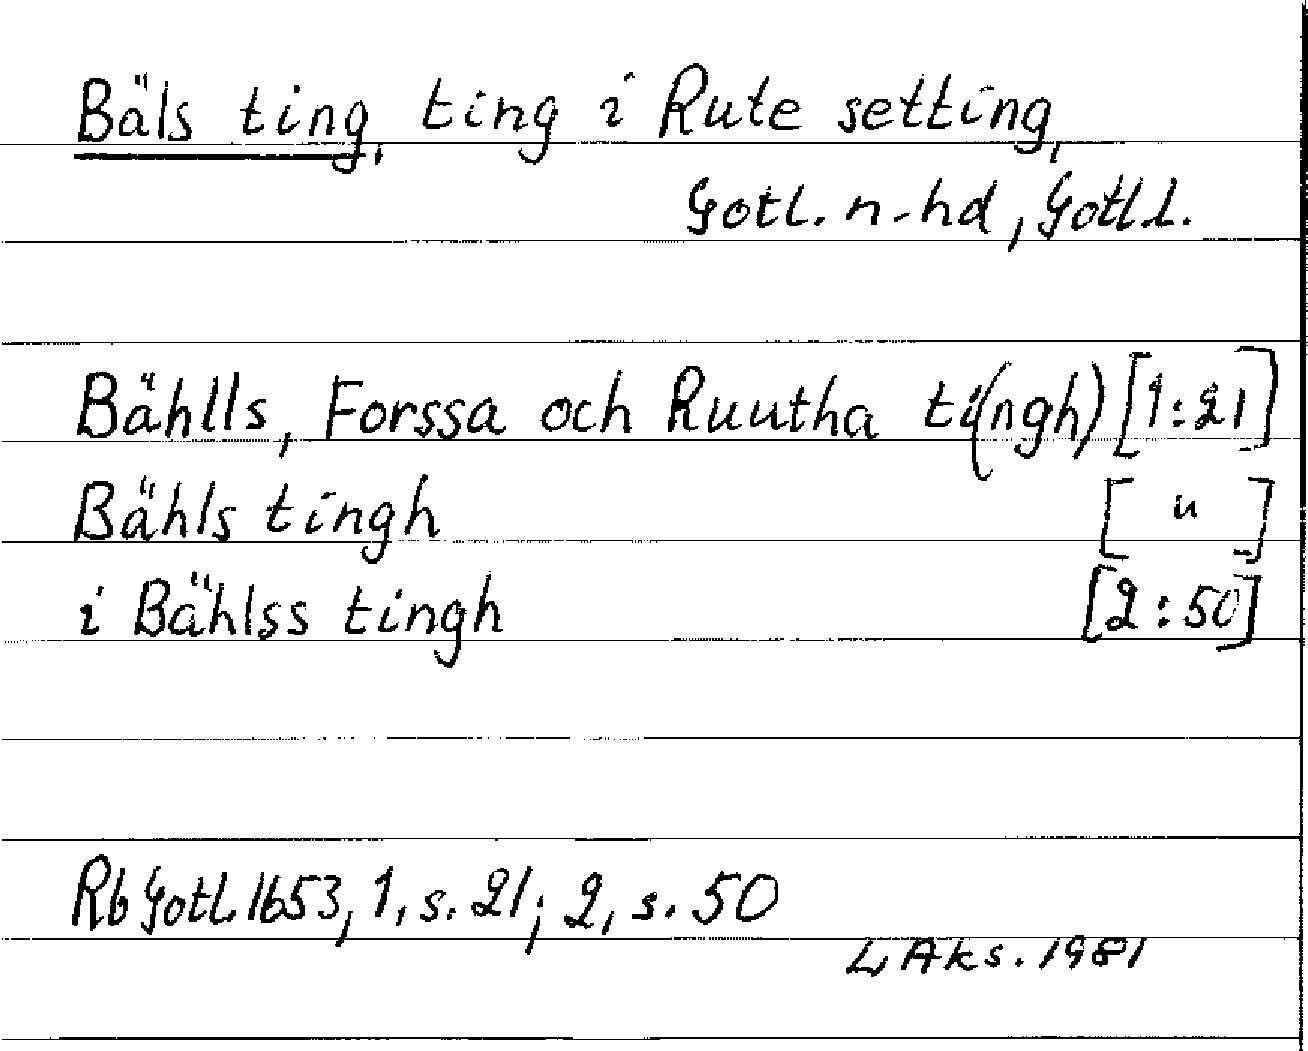 Bäls ting, ting i Rute setting,
Gotl. n. hd, Gotl. l.
Bähls, Forssa och Ruutha ti(ngh) [1:21]
Bähls tingh [ " ]
i Bählss tingh [2:50]
Rb Gotl. 1653, 1, s. 21; 2, s. 50
L Aks. 1981